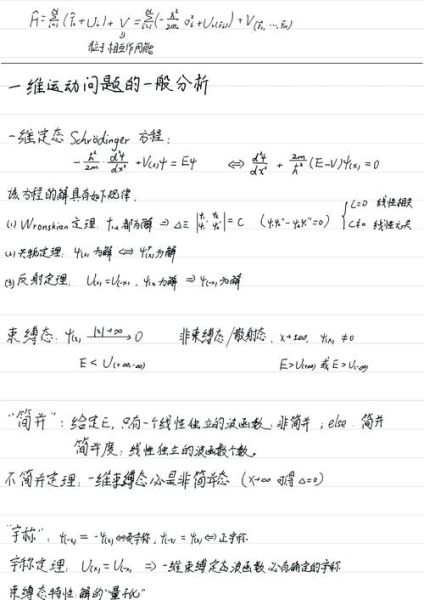 Ĥ = Σ(T̂ᵢ + Uᵢ) + V = Σ(-ħ²/2m ∇ᵢ² + Uᵢ(r⃗ᵢ)) + V(r⃗₁,…r⃗ₙ)
粒子相互作用能
一维运动问题的一般分析
一维定态 Schrödinger 方程:
-ħ²/2m d²ψ/dx² + V(x)ψ = Eψ ⇔ d²ψ/dx² + 2m/ħ² (E-V)ψ(x) = 0
该方程的解具有如下规律.
(1) Wronskian 定理. ψ₁,₂ 都为解 ⇒ Δ ≡ |ψ₁ ψ₂; ψ₁' ψ₂'| = C (ψ₁ψ₂''-ψ₂ψ₁''=0) { C=0 线性相关
C≠0 线性无关
(2) 共轭定理: ψ(x) 为解 ⇔ ψ*(x) 为解
(3) 反射定理. U(x)=U(-x), ψ(x) 为解 ⇒ ψ(-x) 为解
束缚态: ψ(x) |x|→∞ → 0 非束缚态/散射态. x→±∞, ψ(x) ≠ 0
E < U(+∞,-∞) E>U(+∞) 或 E>U(-∞)
"简并": 给定E, 只有一个线性独立的波函数, 非简并; else 简并
简并度: 线性独立的波函数个数.
不简并定理: 一维束缚态必是非简并态 (x→∞ 可得 Δ=0)
"宇称": ψ(-x) = -ψ(x) ⇔ 负宇称, ψ(-x) = ψ(x) ⇔ 正宇称
宇称定理: U(x)=U(-x) ⇒ 一维束缚定态波函数必有确定的宇称
束缚态特性 解的"量子化"